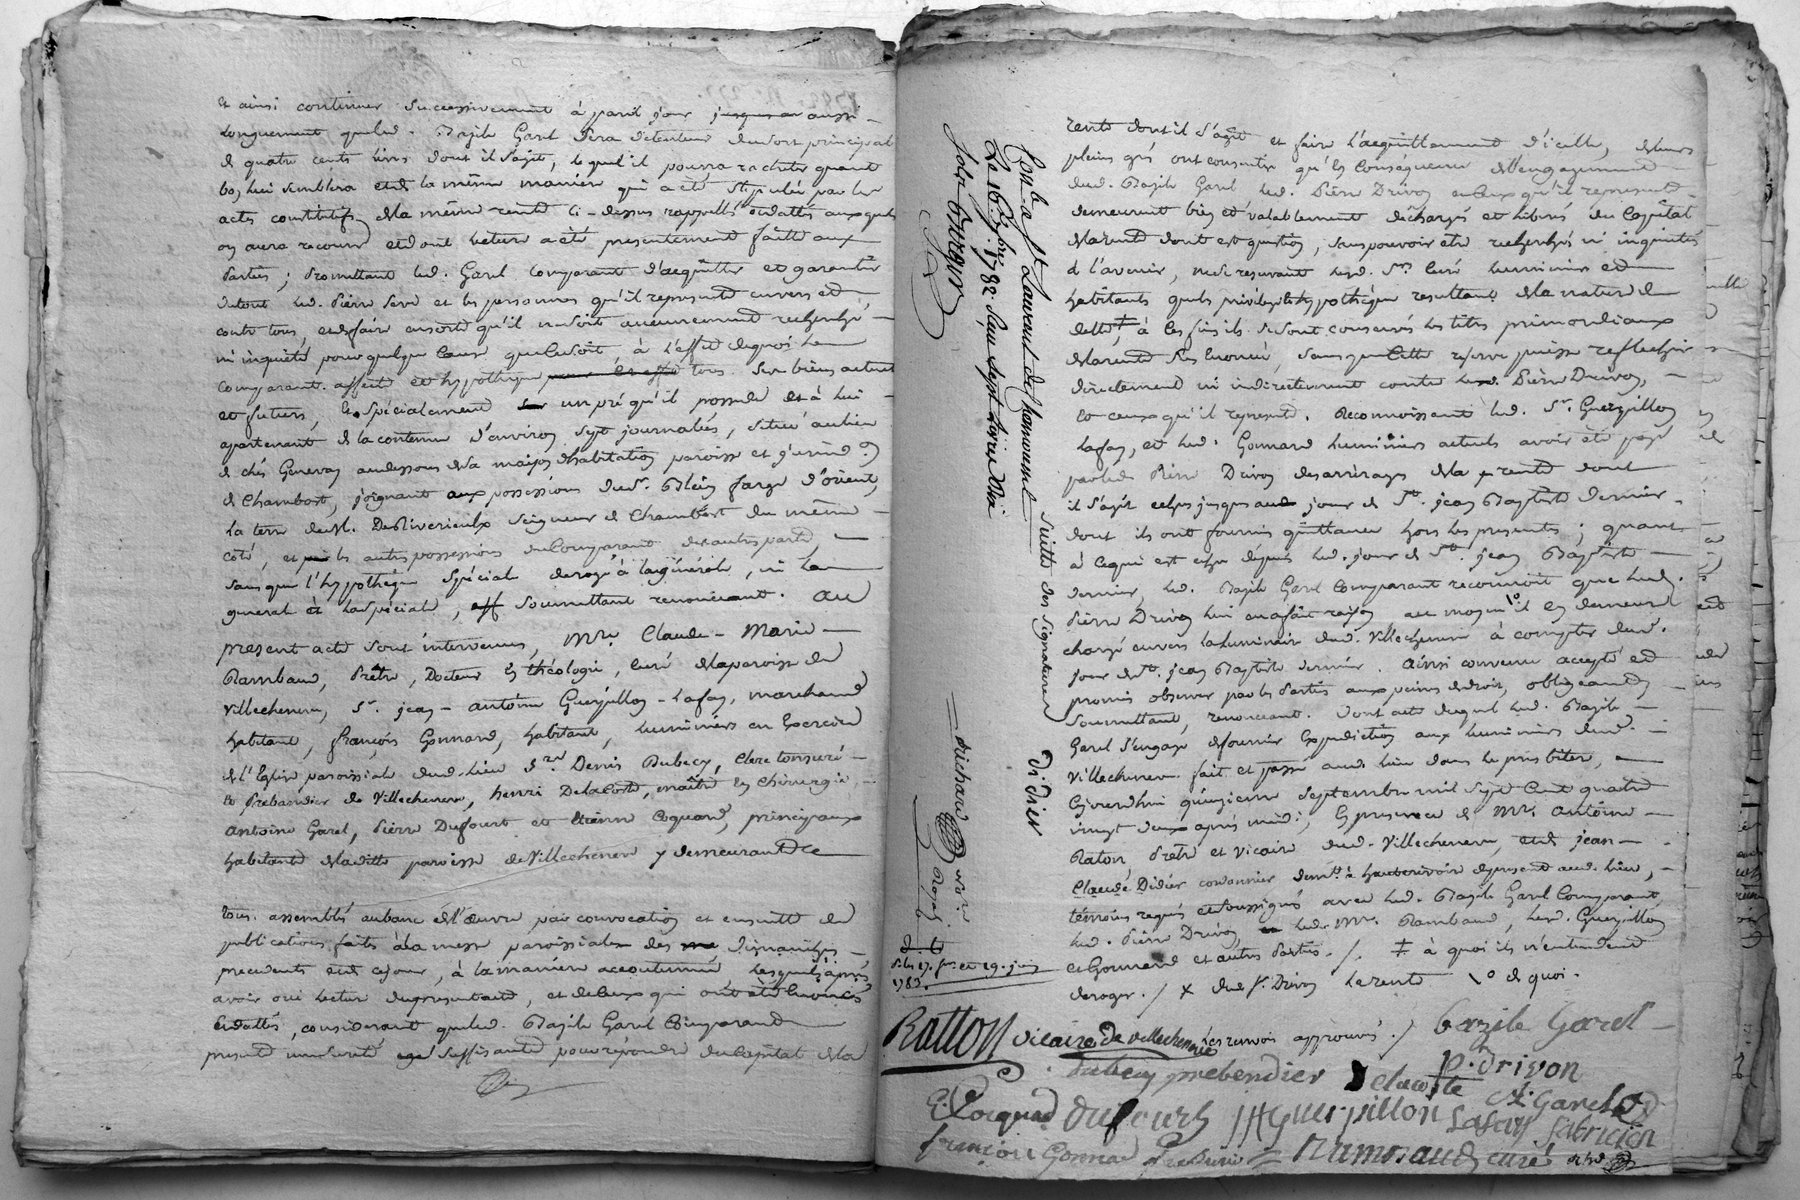 et ainsi continuer successivement à pareil jour jusques au aussi
longuement que led. Bazile Garel sera détenteur dud sort principal
de quatre cents livres dont il s'agit, lequel il pourra racheter quand
bon lui semblera et de la même manière qui a été stipulée par les
actes constitutifs de la même rente ci-dessus rappellés et dattés auxquels
on aura recours et dont lecture a été présentement faitte aux
parties; promettant led. Garel comparant d'acquitter et garantir
du tout led. Pierre et les personnes qu'il représente envers et
contre tous, et de faire en sorte qu'il n'en soit aucunement recherché
ni inquiété pour quelque cause que ce soit, à l'effet de quoi le
comparant affecte et hypothèque tous ses biens actuels
et futurs, et spécialement un pré qu'il possède et à lui
apartenant de la contenue d'environ sept journalés, situé au lieu
de chés Genevay au dessous de sa maison d'habitation paroisse et
de Chambost, joignant aux possessions du Sr. Farge d'orient,
la terre de M. DeRiverieulx seigneur de Chambost du même
côté, et les autres possessions du comparant des autres parts,
sans que l'hypothèque spéciale déroge à la générale, ni la
générale à la spéciale, soumettant renonceant. Au
présent acte sont intervenus, Mre. Claude-Marie
Rambaud, Prêtre, Docteur en théologie, curé de la paroisse de
Villechenève, Sr. jean-antoine Guerpillon-Lafay, marchand
habitant, françois Gonnard, habitant, luminiers en exercice
de l'Eglise paroissiale dud. lieu Sr. Denis Dubecy, Clerc tonsuré
et Prébandier de Villechenève, henri Delacoste, maître en chirurgie,
antoine Garel, Pierre Dufourt et Etienne Coquard, principaux
habitants de laditte paroisse de Villechenève y demeurants
tous assemblés au banc de l'œuvre par convocation et ensuitte de
publications faites à la messe paroissiale des dimanches
précédents et de ce jour, à la manière accoutumée lesquels après
avoir oui lecture du présent acte, et de ceux qui ont été énoncés
et dattés, considérant que led. Bazile Garel comparant
présente une sureté suffisante pour répondre du capital de la
rente dont il s'agit et faire l'acquittement d'icelle, de leurs
pleins grés ont consenti qu'en conséquence de l'engagement
dud. Bazile Garel led. Pierre Drivon et ceux qu'il représente
demeurent bien et valablement déchargés et libérés du Capital
de la rente dont est question, sans pouvoir être recherchés ni inquiétés
à l'avenir, en se réservant lesd. Srs. curé luminiers et
habitants que les privilège et hypothèque résultants de la nature de
dette, ‡ à ces fins ils se sont conservés les titres primordiaux
de la rente sus énoncée, sans que cette réserve puisse réfléchir
directement ni indirectement contre led. Pierre Drivon,
et ceux qu'il représente. Reconnoissant led. Sr. Guerpillon
Lafay, et led. Gonnard luminiers actuels avoir été payé
par led. Pierre Drivon des arrérages de la rente dont
il s'agit échus jusques au jour de St. jean Baptiste dernier
dont ils ont fourni quittance hors les présentes; quant
à ce qui est échu depuis led. jour de St. jean Baptiste
dernier, led. Bazile Garel comparant reconnoit que led.
Pierre Drivon lui en a fait raison au moyen \o il en demeure
chargé envers la luminaire dud. Villechenève à compter dud.
jour de St. jean Baptiste dernier. Ainsi convenu accepté et
promis observer par les Parties aux peines de droit, obligeant
soumettant, renonceant. Dont acte duquel led. Bazile
Garel s'engage de fournir Expédition aux luminiers dud.
Villechenève fait et passé aud. lieu dans le presbitère,
cejourdhui quinzième septembre mil sept cent quatre
vingt deux après midi, En présence de Mre. Antoine
Raton Prêtre et Vicaire dud. Villechenève, et de jean
Claude Didier cordonnier demt. à hauterivoire de présent aud. lieu,
témoins requis et soussignés avec led. Bazile Garel Comparant,
led. Pierre Drivon, led. Mre. Rambaud, led. Guerpillon
et Gonnard et autres Parties ./. ‡ à quoi ils n'entendent
déroger ./ x dud. P. Drivon la rente \o de quoi.
les renvois approuvés ./
bazile Garel
Ratton vicaire de villechenève
P. Drivon
Dubecy prebendier Delacoste
A. Garel
E. Cocquard dufourt JAGuerpillon Lafay fabricien
françois Gonnard Rambaud curé
Conlé a St. Laurent de Chamousset
Le 16 7bre. 1782. Reçu sept livres dix
sols
Suitte des signatures
Didier
Richard
D. C
1783.